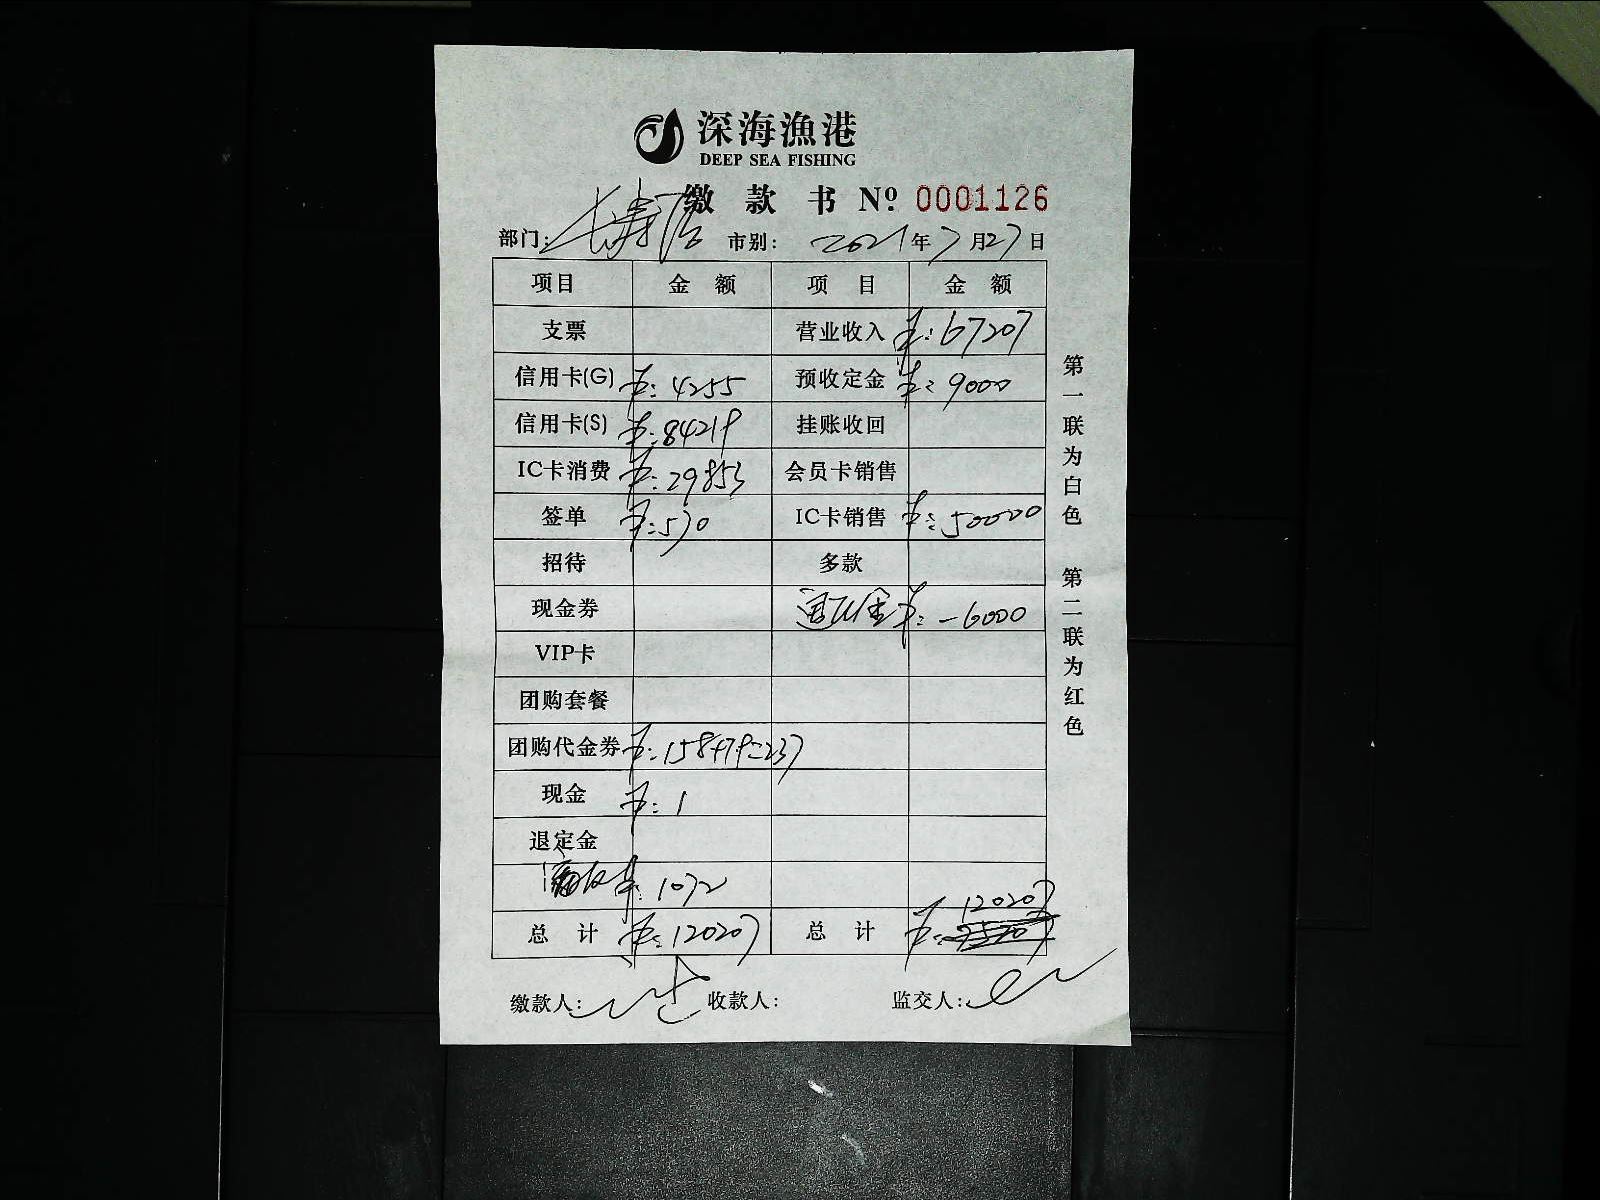 深海渔港
DEEP SEA FISHING
缴 款 书 Nº 0001126
部门: 长寿店 市别: 2021年7月27日
项目 金 额 项 目 金 额
支票 营业收入 ¥:67207
信用卡(G) ¥:4255 预收定金 ¥:9000
信用卡(S) ¥:84219 挂账收回
IC卡消费 ¥:29853 会员卡销售
签单 ¥:570 IC卡销售 ¥:50000
招待 多款
现金券 退订金 ¥:-6000
VIP卡
团购套餐
团购代金券 ¥:158+79=237
现金 ¥:1
退定金
¥:1072
总 计 ¥:120207 总 计 ¥:120207
缴款人: 收款人: 监交人:
第一联为白色
第二联为红色